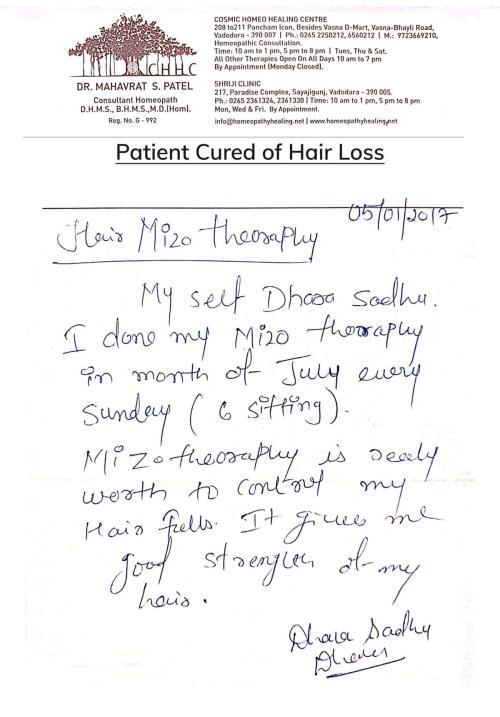 COSMIC HOMEO HEALING CENTRE
208 to211 Pancham Icon, Besides Vasna D-Mart, Vasna-Bhayli Road,
Vadodara - 390 007 | Ph.: 0265 2250212, 6560212 | M.: 9723669210,
Homeopathic Consultation.
Time: 10 am to 1 pm, 5 pm to 8 pm | Tues, Thu & Sat.
All Other Therapies Open On All Days 10 am to 7 pm
By Appointment (Monday Closed).
CHHC
DR. MAHAVRAT S. PATEL
Consultant Homeopath
D.H.M.S., B.H.M.S.,M.D.(Hom).
Reg. No. G - 992
SHRIJI CLINIC
217, Paradise Complex, Sayajigunj, Vadodara - 390 005.
Ph.: 0265 2361324, 2361330 | Time: 10 am to 1 pm, 5 pm to 8 pm
Mon, Wed & Fri. By Appointment.
info@homeopathyhealing.net | www.homeopathyhealing.net
Patient Cured of Hair Loss
05/01/2017
Hair Mizo theoraphy
My self Dhara Sadhu.
I done my Mizo theoraphy
in month of July every
Sunday ( 6 sitting ).
Mizo theoraphy is really
worth to control my
Hair fells. It gives me
good strength of my
hair.
Dhara Sadhu